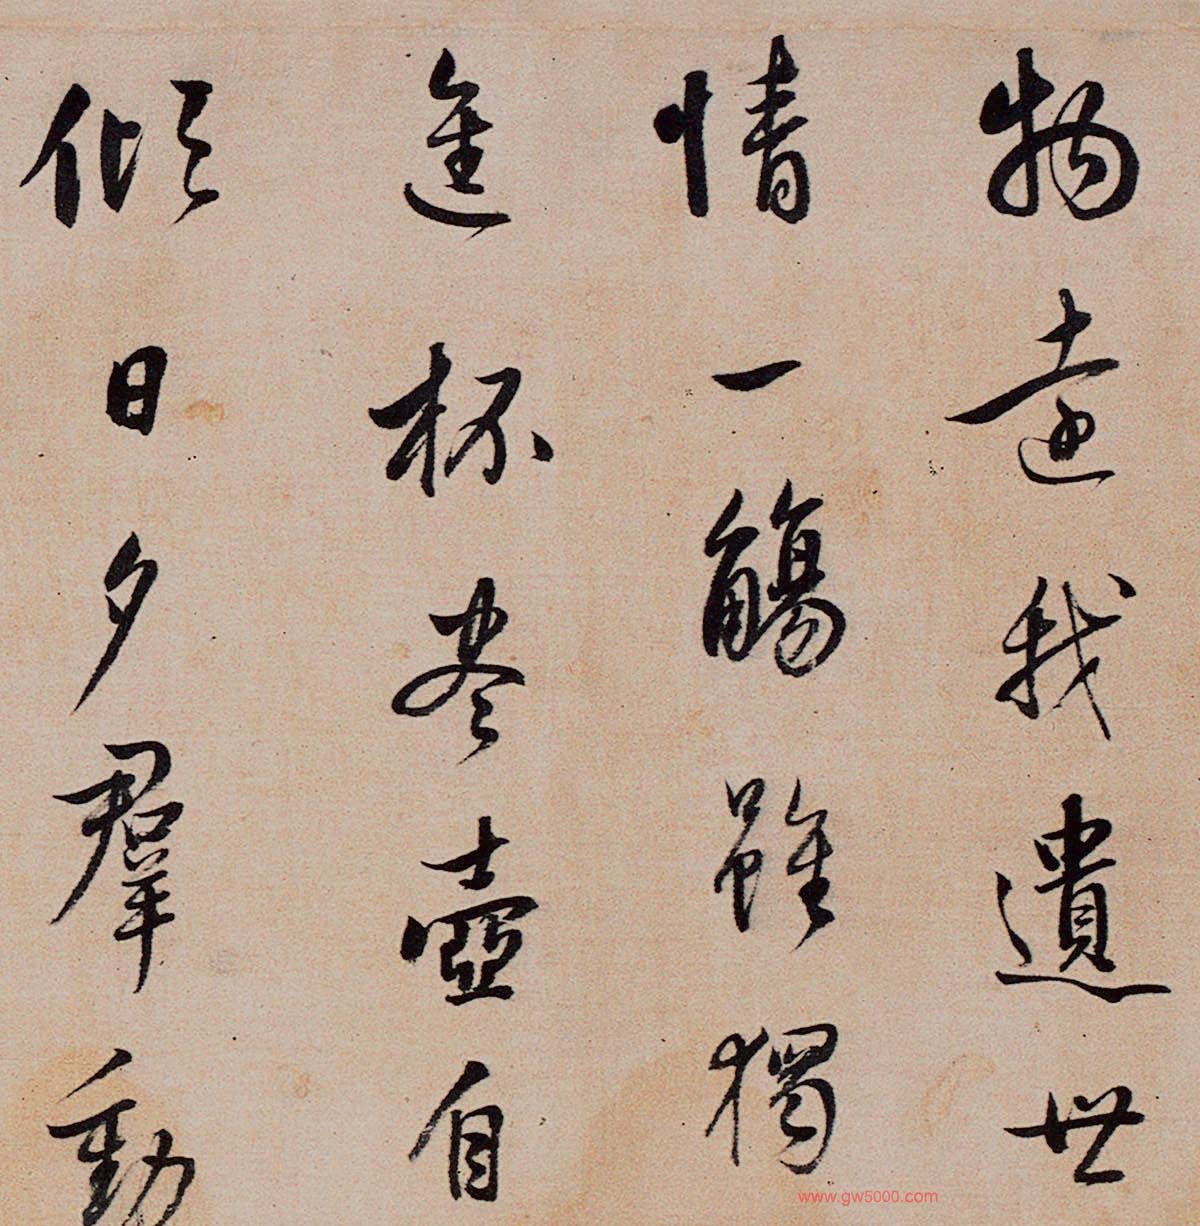 物遠我遺世
情一觴雖獨
進杯盡壺自
傾日夕羣動
www.gw5000.com